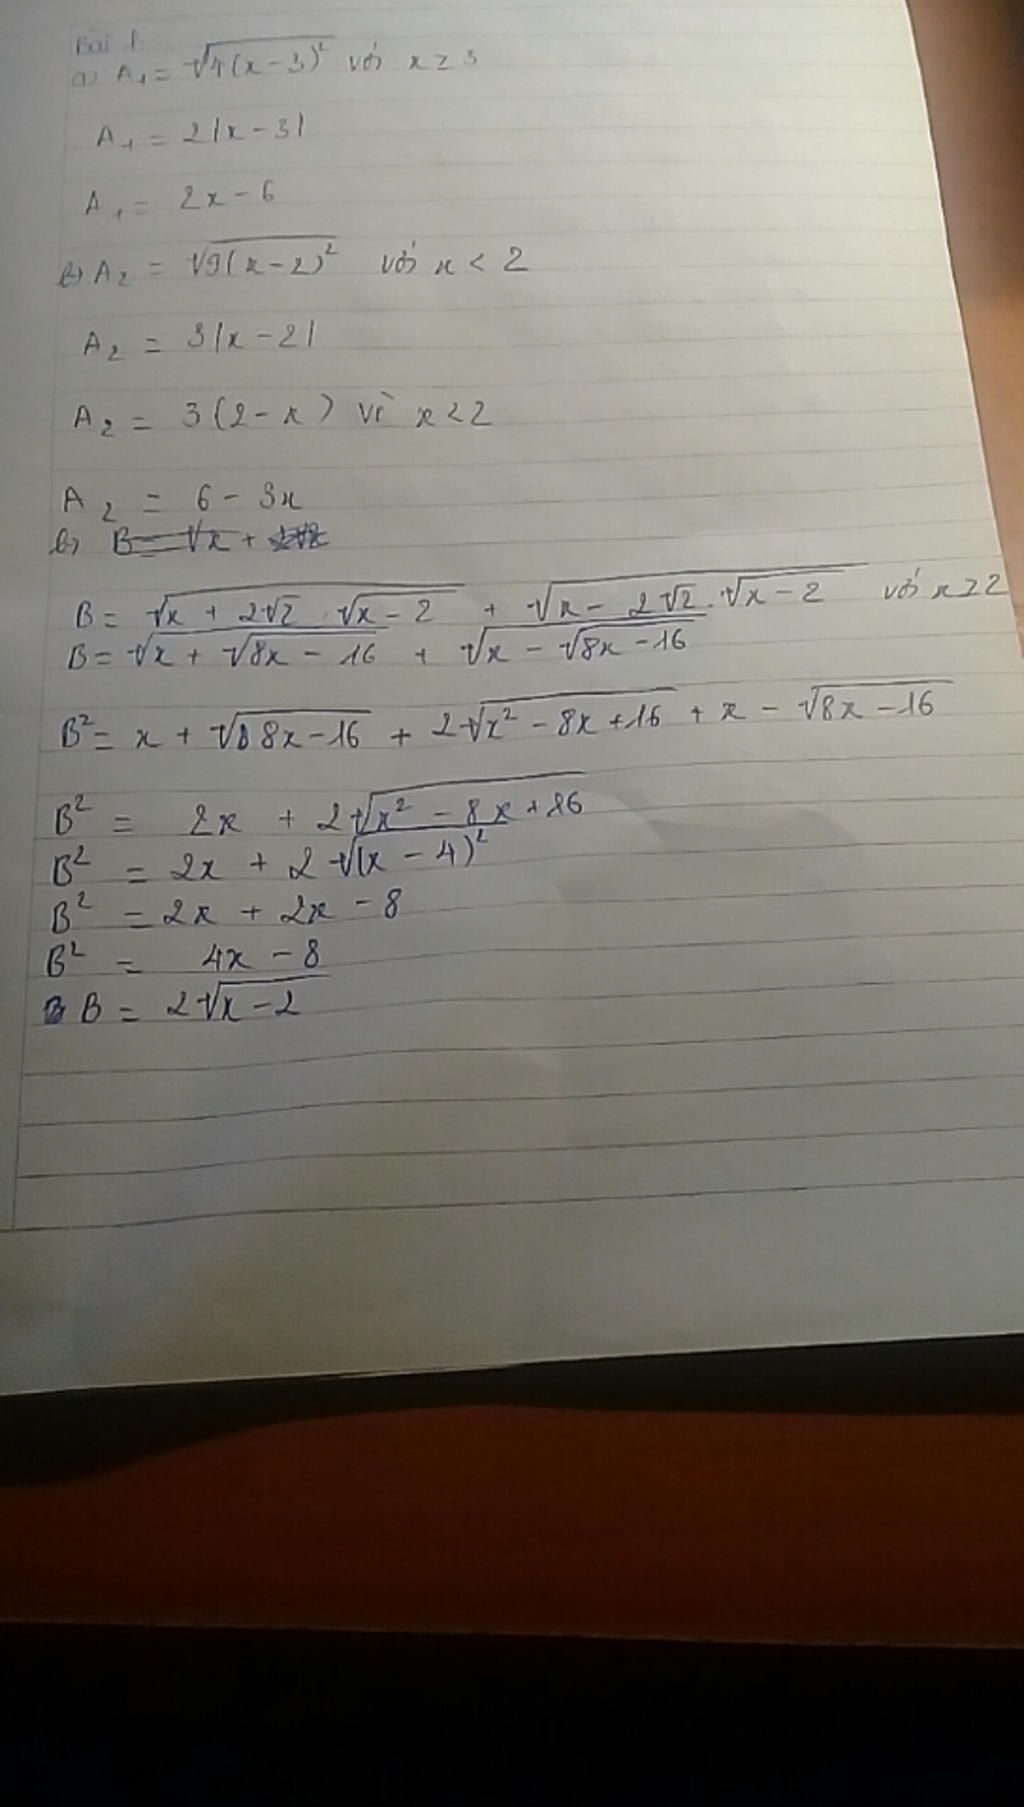 Bài 1:
a) A₁ = √4(x-3)² với x ≥ 3
A₁ = 2|x-3|
A₁ = 2x-6
b) A₂ = √9(x-2)² với x < 2
A₂ = 3|x-2|
A₂ = 3(2-x) vì x<2
A₂ = 6-3x
b) B=√x +
B = √x + 2√2 . √x-2 + √x - 2√2 . √x-2 với x≥2
B = √x + √8x-16 + √x - √8x-16
B² = x + √8x-16 + 2√x²-8x+16 + x - √8x-16
B² = 2x + 2√x²-8x+16
B² = 2x + 2√(x-4)²
B² = 2x + 2x - 8
B² = 4x - 8
B = 2√x-2